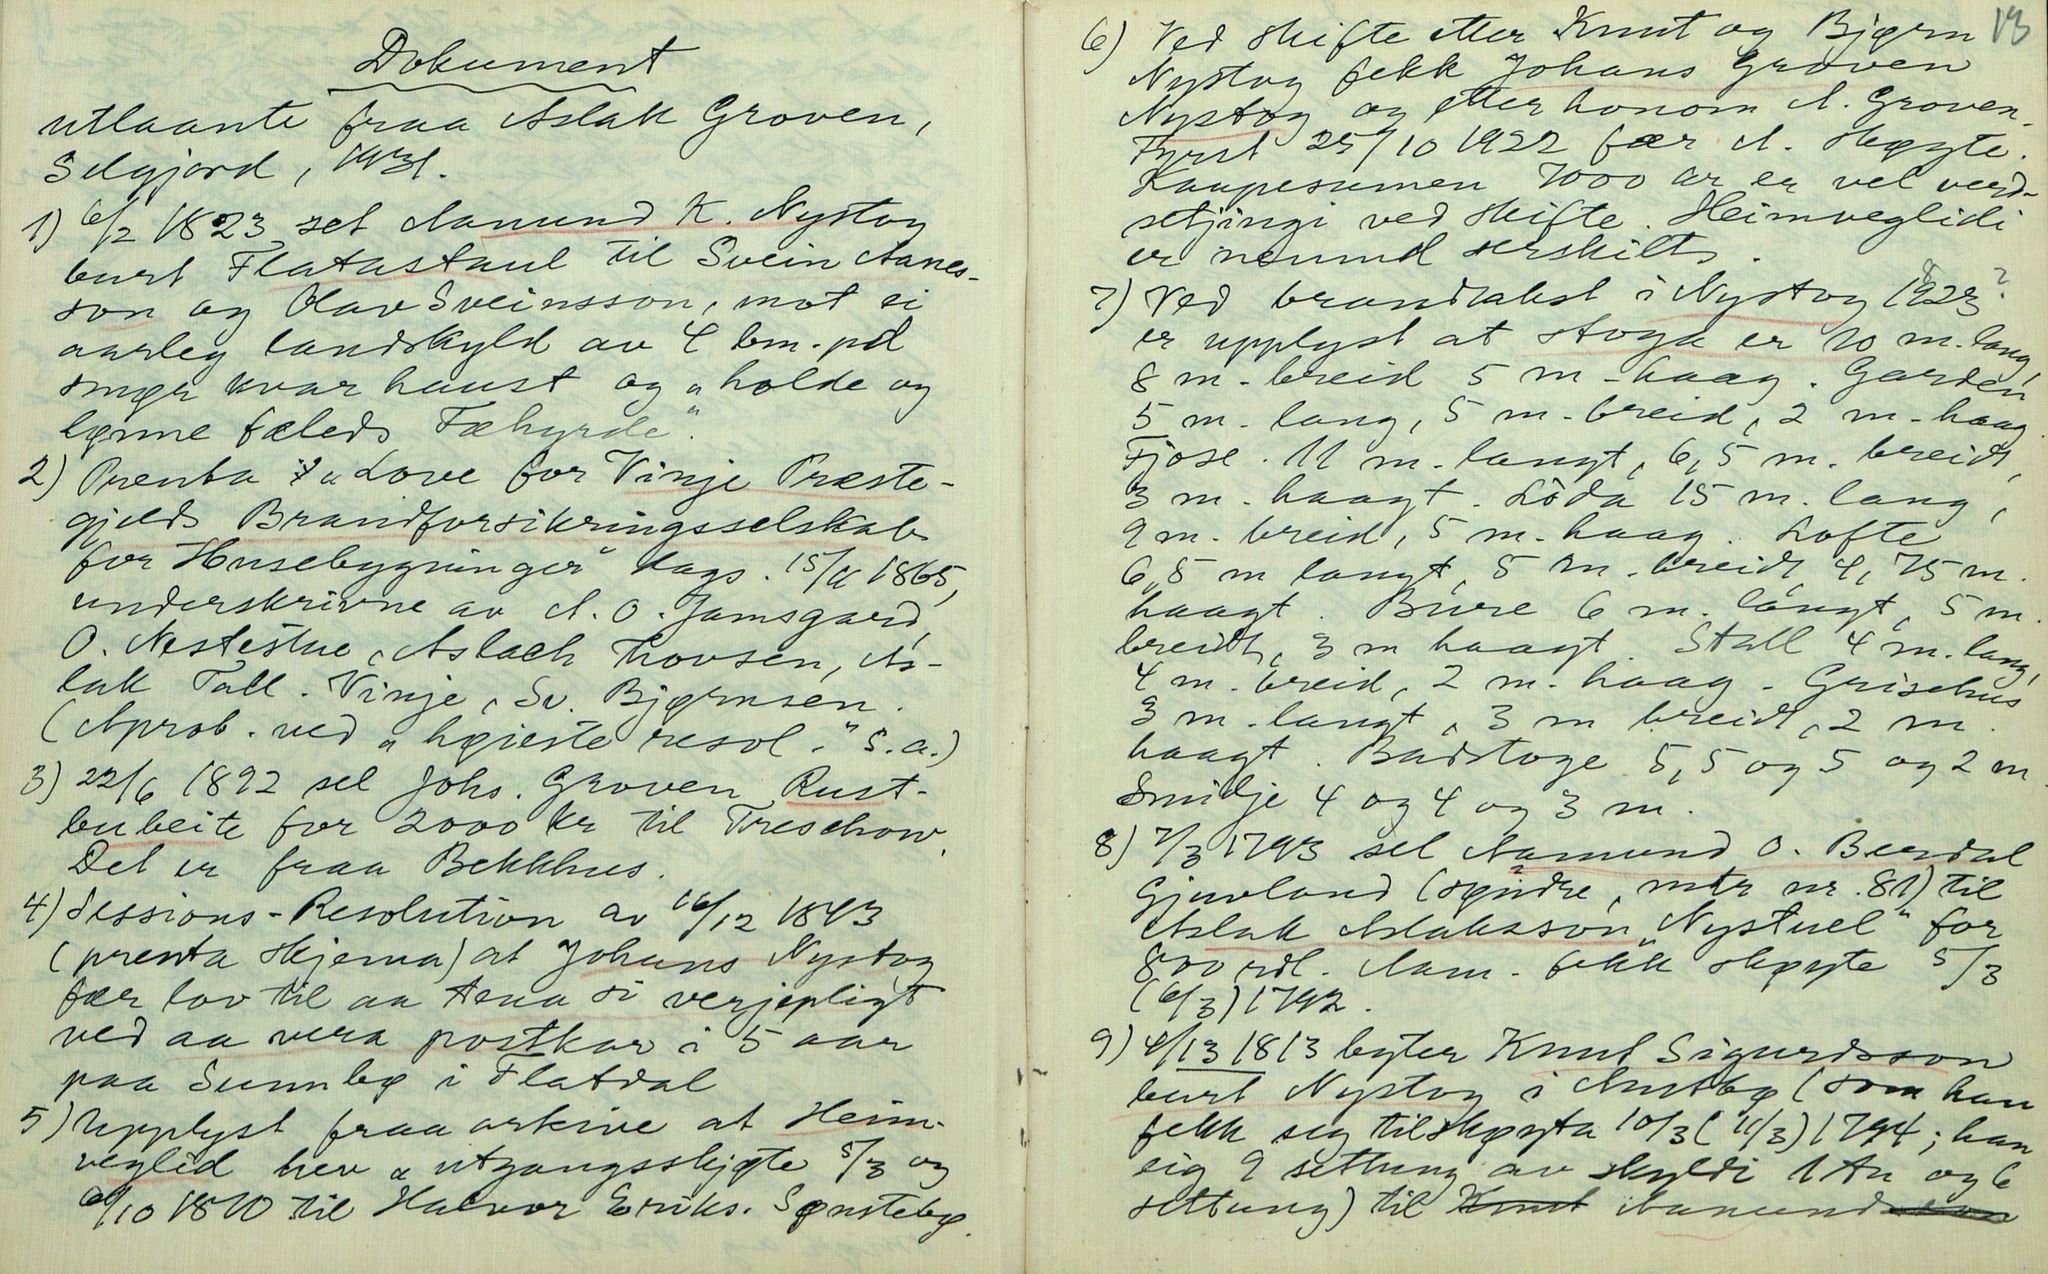 Dokument
utlaante fraa Aslak Groven,
Selgjord, 1931.
1) 6/2 1823 sel Aamund K. Nystog
burt Flatastaul til Svein Aanes-
son og Olav Sveinsson, mot ei
aarleg landskyld av 4 bm. pd
smør kvar haust og "holde og
lønne fæleds Fæhyrde".
2) Prenta "Love for Vinje Præste-
gjelds Brandforsikringsselskab
for Husebygninger" dags. 15/11 1865,
underskrivne av A. O. Jamsgard,
O. Nestestue, Aslach Thovsen, As-
lak Tall. Vinje, Sv. Bjørnsen.
(Aprob. ved "høieste resol." s.a.)
3) 22/6 1892 sel Johs. Groven Rust-
bubeite for 2000 kr til Treschow.
Det er fraa Bekkhus.
4) Sessions-Resolution av 16/12 1843
(prenta skjema) at Johans Nystog
fær lov til aa tena si verjepligt
ved aa vera postkar i 5 aar
paa Sunnbø i Flatdal
5) Upplyst fraa arkive at Heim-
veglid hev "utgangsskjøte 5/3 og
6/10 1870 til Halvor Eriks. Sønstebø.
13
6) Ved skifte etter Knut og Bjørn
Nystog fekk Johans Groven
Nystog og etter honom A. Groven.
Fyrst 25/10 1922 fær A. skøyte.
Kaupesumen 7000 kr er vel verd-
setjingi ved skifte. Heimveglidi
er nemnd serskilt.
7) Ved brandtakst i Nystog 1923 8?
er upplyst at stoga er 10 m. lang,
8 m. breid 5 m. haag. Garden
5 m. lang, 5 m. breid, 2 m. haag.
Fjose. 11 m. langt, 6,5 m. breidt,
3 m. haagt. Löda 15 m. lang,
9 m. breid, 5 m. haag. Lofte
6,5 m langt, 5 m. breidt, 4,75 m.
haagt. Bure 6 m. langt, 5 m.
breidt, 3 m haagt. Stall 4 m. lang,
4 m. breid, 2 m. haag. Grisehus
3 m. langt, 3 m breidt, 2 m.
haagt. Badstoge 5,5 og 5 og 2 m.
Smidje 4 og 4 og 3 m.
8) 7/3 1793 sel Aamund O. Berdal
Gjuvland (søndre, mtr nr. 81) til
Aslak Aslaksson "Nystuel" for
800 rdl. Aam. fekk skøyte 5/3
(6/3) 1792.
9) 4/13 1813 byter Knut Sigurdsson
burt Nystog i Austbø (som han
fekk seg tilskøyta 10/3 (11/3) 1794; han
eig 9 settung av skyldi 1 tn og 6
settung) til Knut Aamund